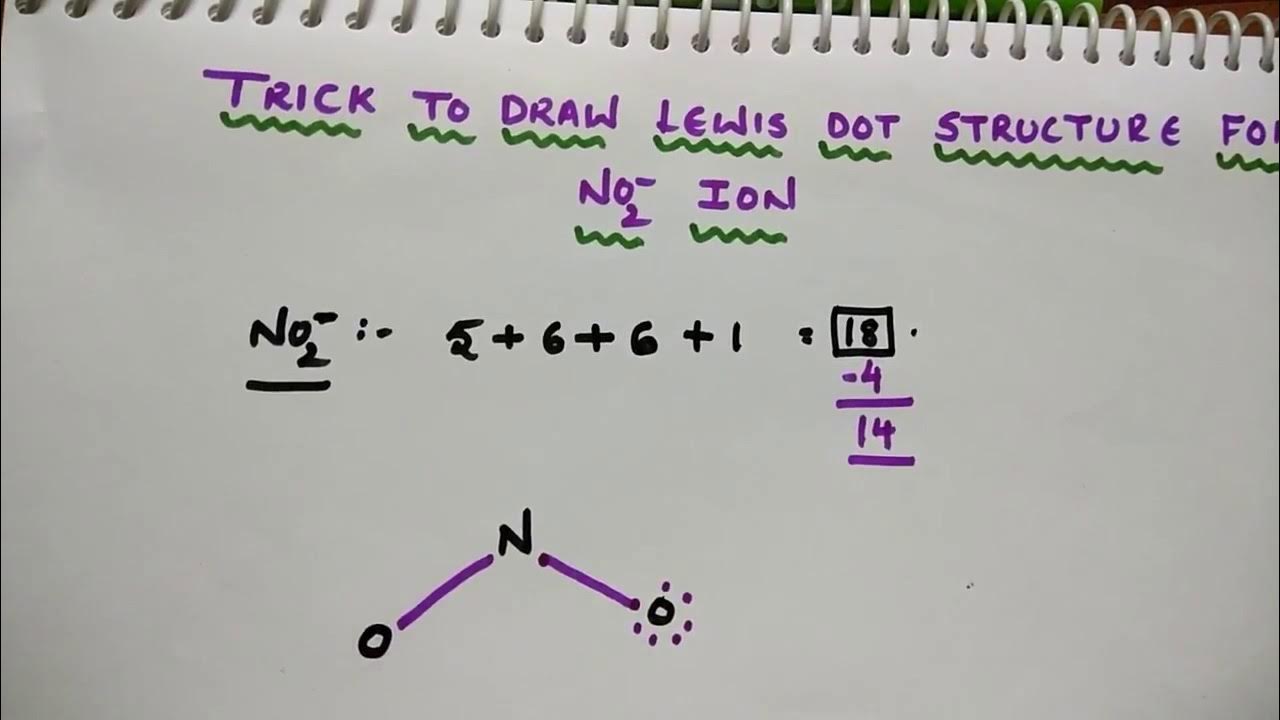 TRICK TO DRAW LEWIS DOT STRUCTURE FO
NO₂⁻ ION
NO₂⁻ :- 5 + 6 + 6 + 1 = 18 .
-4
14
N
O O